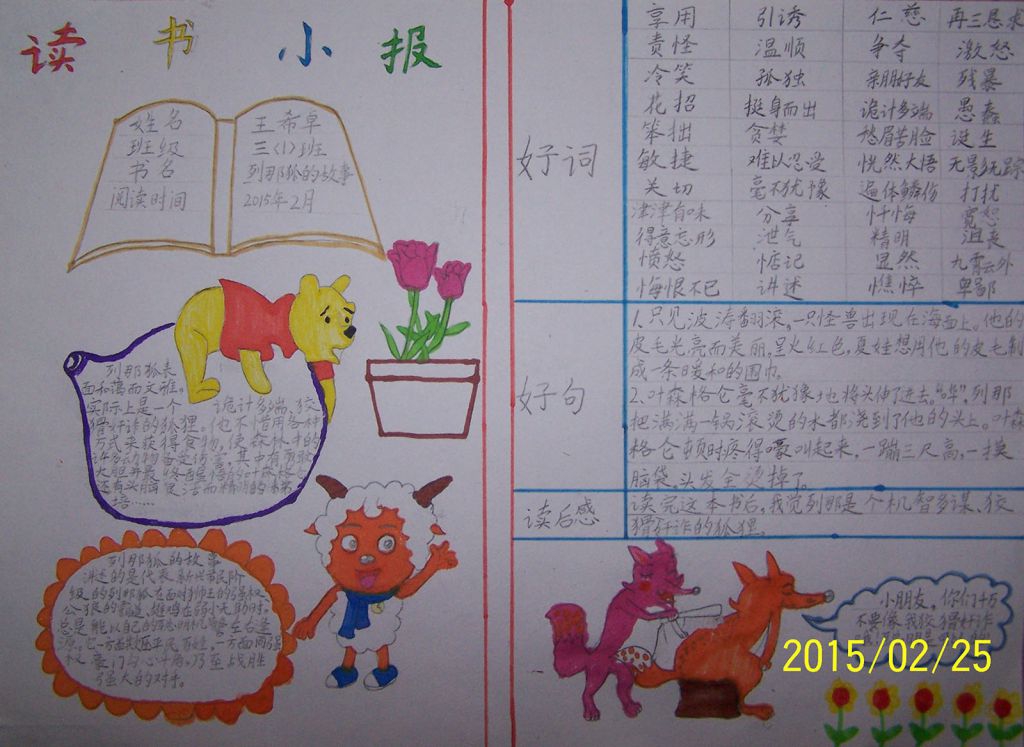 读书小报
姓名 王希卓
班级 三(1)班
书名 列那狐的故事
阅读时间 2015年2月
列那狐表
面和蔼而文雅。
实际上是一个 诡计多端、狡
猾奸诈的狐狸。他也不惜用各种
方式来获得食物,使森林中的
许多动物备受伤害。其中有
还有头脑灵活而精明的
列那狐的故事
讲述的是代表新兴市民阶
级的列那狐在面对狮王的强权
公狼的霸道、雄鸡在弱小无助时。
总是能以自己的聪明机警左右逢
源。它一方面欺压平民百姓,一方面同强
权豪门勾心斗角。乃至战胜
强大的对手。
好词
享用 引诱 仁慈 再三恳求
责怪 温顺 争夺 激怒
冷笑 孤独 亲朋好友 残暴
花招 挺身而出 诡计多端 愚蠢
笨拙 贪婪 愁眉苦脸 诞生
敏捷 难以忍受 恍然大悟 无影无踪
关切 毫不犹豫 遍体鳞伤 打扰
津津有味 分享 忏悔 宽恕
得意忘形 泄气 精明 沮丧
愤怒 惦记 显然 九霄云外
悔恨不已 讲述 憔悴 卑鄙
好句
1.只见波涛翻滚,一只怪兽出现在海面上。他的
皮毛光亮而美丽,呈火红色,夏娃想用他的皮毛制
成一条暖和的围巾。
2.叶森格仑毫不犹像地将头伸了进去。“哗”,列那
把满满一锅滚烫的水都浇到了他的头上。叶森
格仑顿时疼得嚎叫起来,一蹦三尺高,一摸
脑袋,头发全烫掉了。
读后感
读完这本书后,我觉列那是个机智多谋、狡
猾奸诈的狐狸。
小朋友,你们千万
不要像我狡猾奸诈
2015/02/25